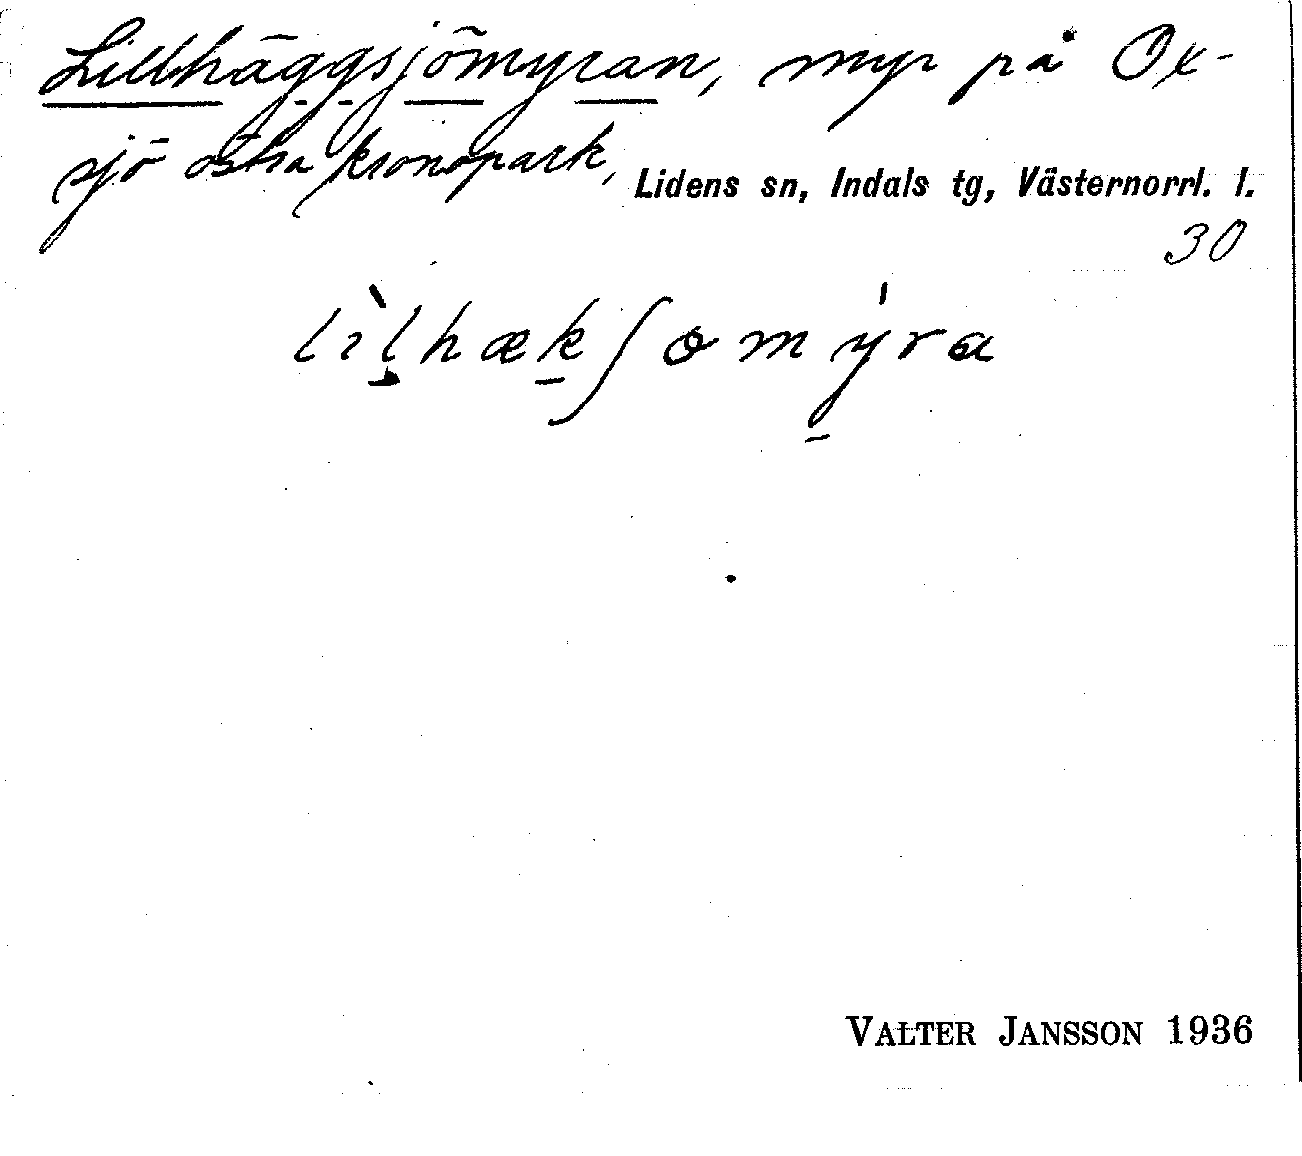 Lillhäggsjömyran, myr på Ox-
sjö östra kronopark, Lidens sn, Indals tg, Västernorrl. l.
30
lìlhækʃomýra
VALTER JANSSON 1936